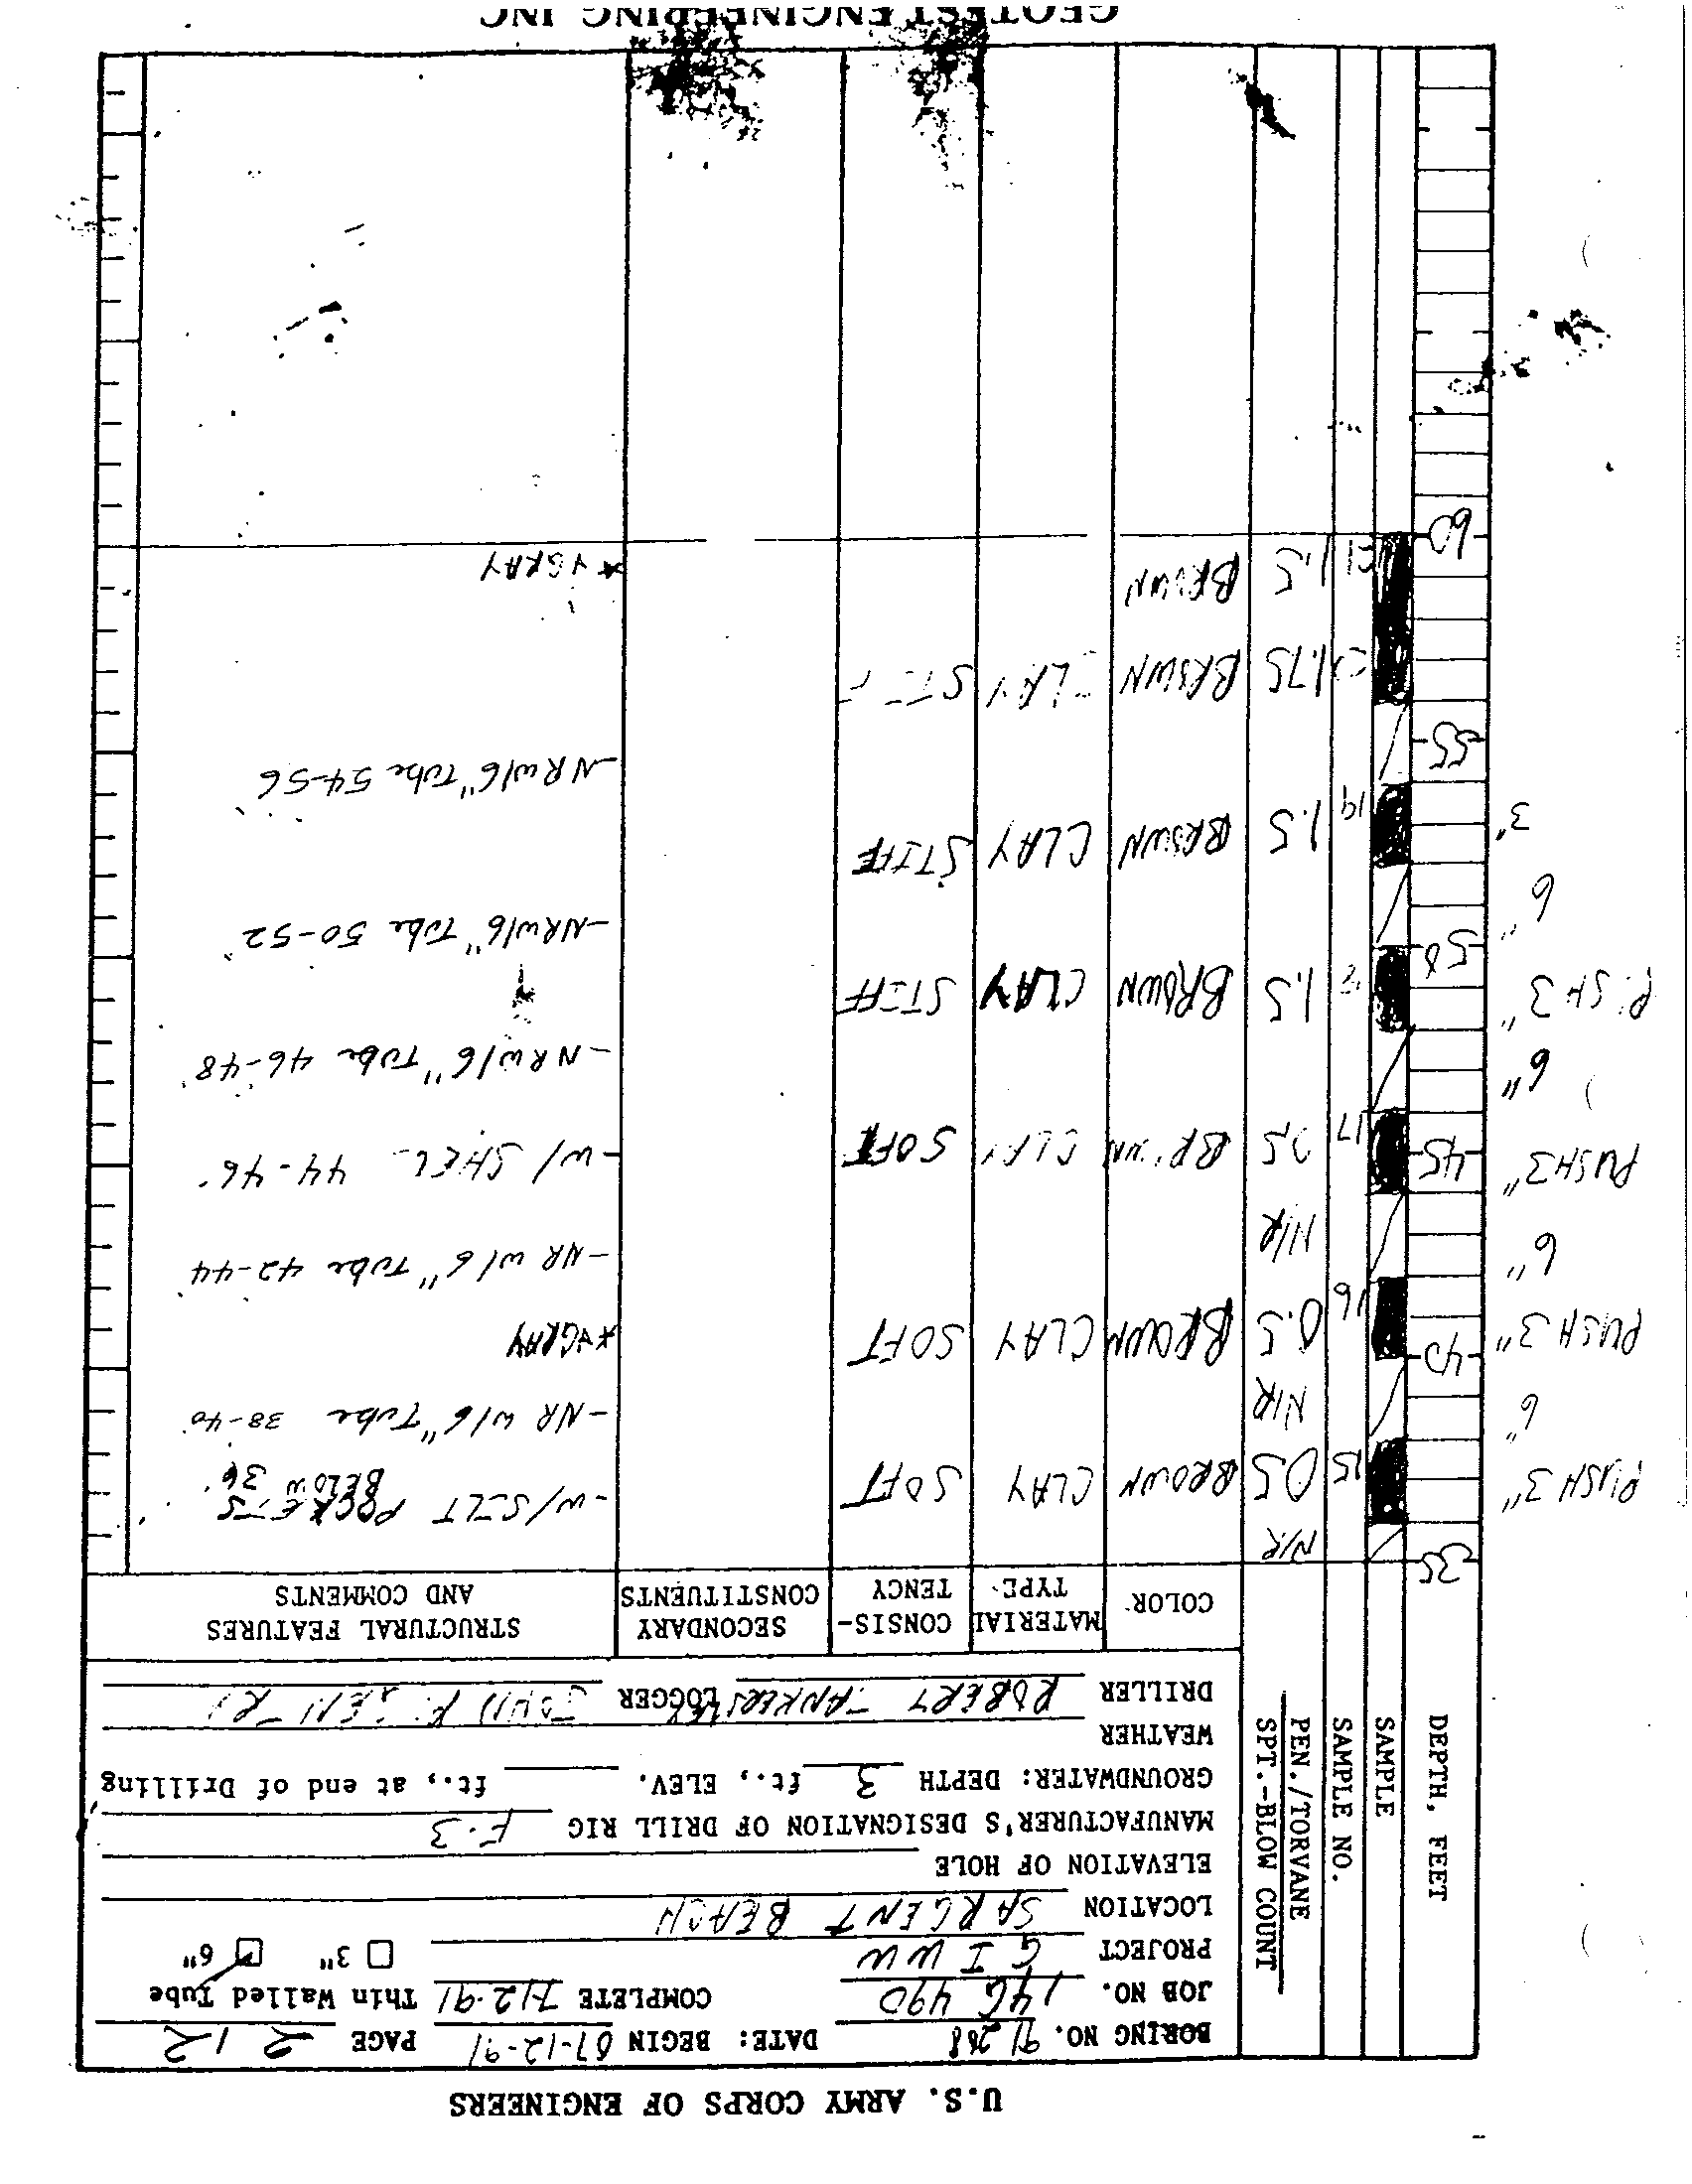 U.S. ARMY CORPS OF ENGINEERS
BORING NO. 91-268 DATE: BEGIN 07-12-91 PAGE 2 / 2
JOB NO. 14G 490 COMPLETE 7-12-91 Thin Walled Tube
PROJECT G I W W □ 3" ☑ 6"
LOCATION SARGENT BEACH
ELEVATION OF HOLE
MANUFACTURER'S DESIGNATION OF DRILL RIG F-3
GROUNDWATER: DEPTH 3 ft., ELEV. ft., at end of Drilling
WEATHER
DRILLER ROBERT TANKERSLEY LOGGER JOHN
DEPTH, FEET
SAMPLE
SAMPLE NO.
PEN./TORVANE
SPT.-BLOW COUNT
COLOR
MATERIAL TYPE
CONSIS-TENCY
SECONDARY CONSTITUENTS
STRUCTURAL FEATURES AND COMMENTS
35 N/R
PUSH 3" 15 0.5 BROWN CLAY SOFT -W/SILT POCKETS
BELOW 36'
6" N/R -NR W/6" Tube 38-40'
PUSH 3" 40 16 0.5 BROWN CLAY SOFT *+GRAY
6" N/R -NR W/6" Tube 42-44'
PUSH 3" 45 17 BROWN CLAY SOFT -W/ SHELL 44-46'
6" -NR W/6" Tube 46-48'
PUSH 3" 50 1.5 BROWN CLAY STIFF
6" -NR W/6" Tube 50-52'
3" 19 1.5 BROWN CLAY STIFF
55 -NR W/6" Tube 54-56'
1.75 BROWN CLAY STIFF
60 21 1.5 BROWN *+GRAY
GEOTEST ENGINEERING INC